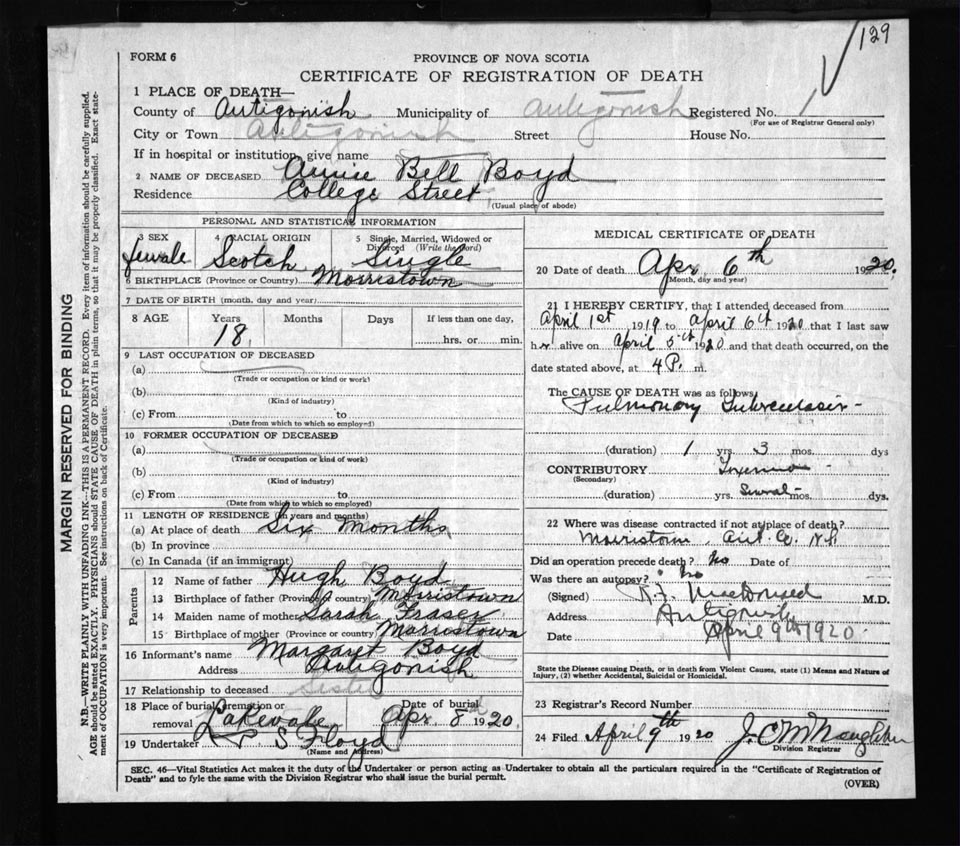 129
FORM 6
PROVINCE OF NOVA SCOTIA
CERTIFICATE OF REGISTRATION OF DEATH
1 PLACE OF DEATH—
County of Antigonish Municipality of Antigonish Registered No. 1
(For use of Registrar General only)
City or Town Antigonish Street House No.
If in hospital or institution, give name
2 NAME OF DECEASED Annie Bell Boyd
Residence College Street
(Usual place of abode)
PERSONAL AND STATISTICAL INFORMATION
3 SEX 4 RACIAL ORIGIN 5 Single, Married, Widowed or Divorced (Write the word)
female Scotch Single
6 BIRTHPLACE (Province or Country) Morristown
7 DATE OF BIRTH (month, day and year)
8 AGE Years Months Days If less than one day,
18 hrs. or min.
9 LAST OCCUPATION OF DECEASED
(a)
(Trade or occupation or kind or work)
(b)
(Kind of industry)
(c) From to
(Date from which to which so employed)
10 FORMER OCCUPATION OF DECEASED
(a)
(Trade or occupation or kind of work)
(b)
(Kind of industry)
(c) From to
(Date from which to which so employed)
11 LENGTH OF RESIDENCE (in years and months)
(a) At place of death Six Months
(b) In province
(c) In Canada (if an immigrant)
Parents
12 Name of father Hugh Boyd
13 Birthplace of father (Province or country) Morristown
14 Maiden name of mother Sarah Fraser
15 Birthplace of mother (Province or country) Morristown
16 Informant's name Margaret Boyd
Address Antigonish
17 Relationship to deceased Sister
18 Place of burial, cremation or removal Lakevale Date of burial Apr. 8th 1920.
19 Undertaker P S Floyd
(Name and Address)
MEDICAL CERTIFICATE OF DEATH
20 Date of death Apr. 6th 1920.
(Month, day and year)
21 I HEREBY CERTIFY, that I attended deceased from
April 1st 1919 to April 6th 1920 that I last saw
her alive on April 5th 1920 and that death occurred, on the
date stated above, at 4 P. m.
The CAUSE OF DEATH was as follows:
Pulmonary Tuberculosis
(duration) 1 yrs. 3 mos. dys
CONTRIBUTORY
(Secondary)
(duration) yrs. Several mos. dys.
22 Where was disease contracted if not at place of death?
Morristown, Ant. Co. N.S.
Did an operation precede death? No Date of
Was there an autopsy? No
(Signed) MacDonald M.D.
Address Antigonish
Date April 9th 1920.
State the Disease causing Death, or in death from Violent Causes, state (1) Means and Nature of
Injury, (2) whether Accidental, Suicidal or Homicidal.
23 Registrar's Record Number
24 Filed April 9th 1920 J. C. McNaughton
Division Registrar
SEC. 46—Vital Statistics Act makes it the duty of the Undertaker or person acting as Undertaker to obtain all the particulars required in the "Certificate of Registration of
Death" and to fyle the same with the Division Registrar who shall issue the burial permit.
(OVER)
MARGIN RESERVED FOR BINDING
N.B.—WRITE PLAINLY WITH UNFADING INK—THIS IS A PERMANENT RECORD. Every item of information should be carefully supplied.
AGE should be stated EXACTLY. PHYSICIANS should STATE CAUSE OF DEATH in plain terms, so that it may be properly classified. Exact statement
of OCCUPATION is very important. See instructions on back of Certificate.